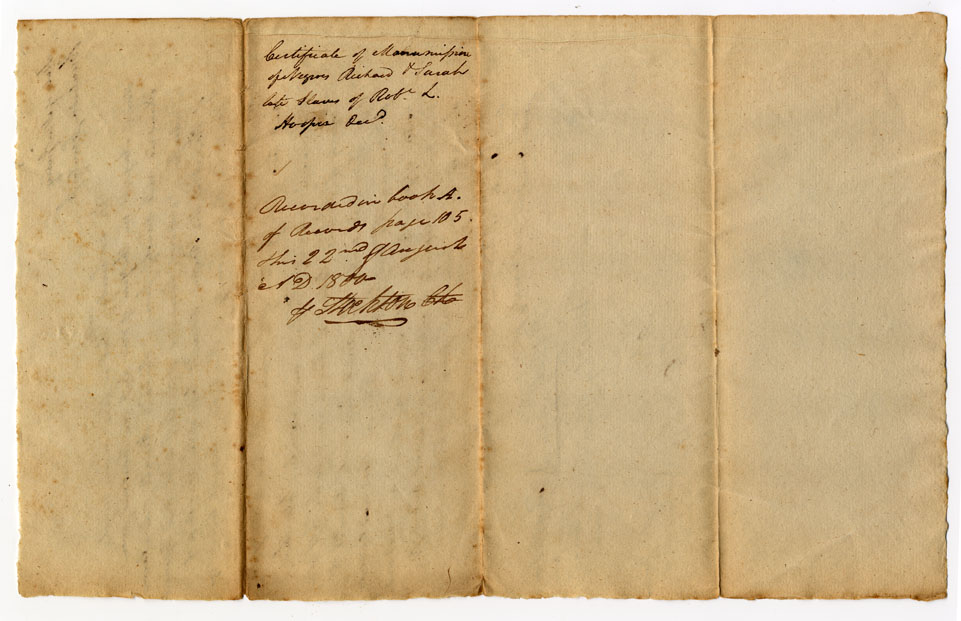 Certificate of Manumission
of Negroes Richard & Sarah
late Slaves of Robt. L.
Hooper Decd.
Recorded in book A.
of Records page 105.
this 22nd of August
A D. 1800
Stockton Clk